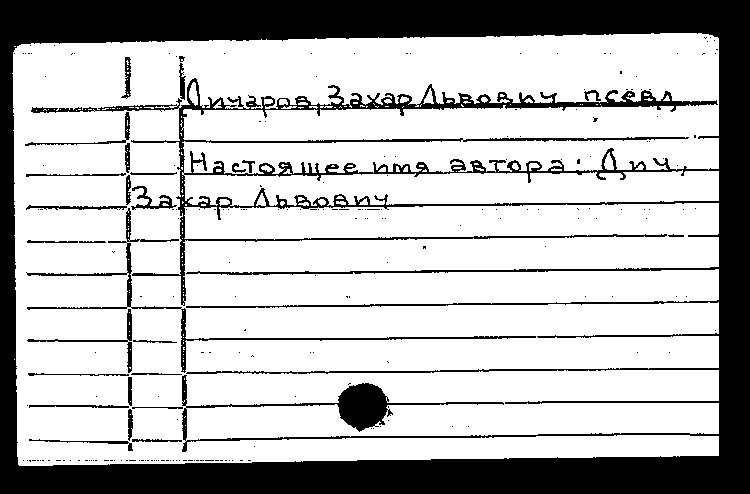 Дичаров, Захар Львович, псевд.
Настоящее имя автора: Дич,
Захар Львович